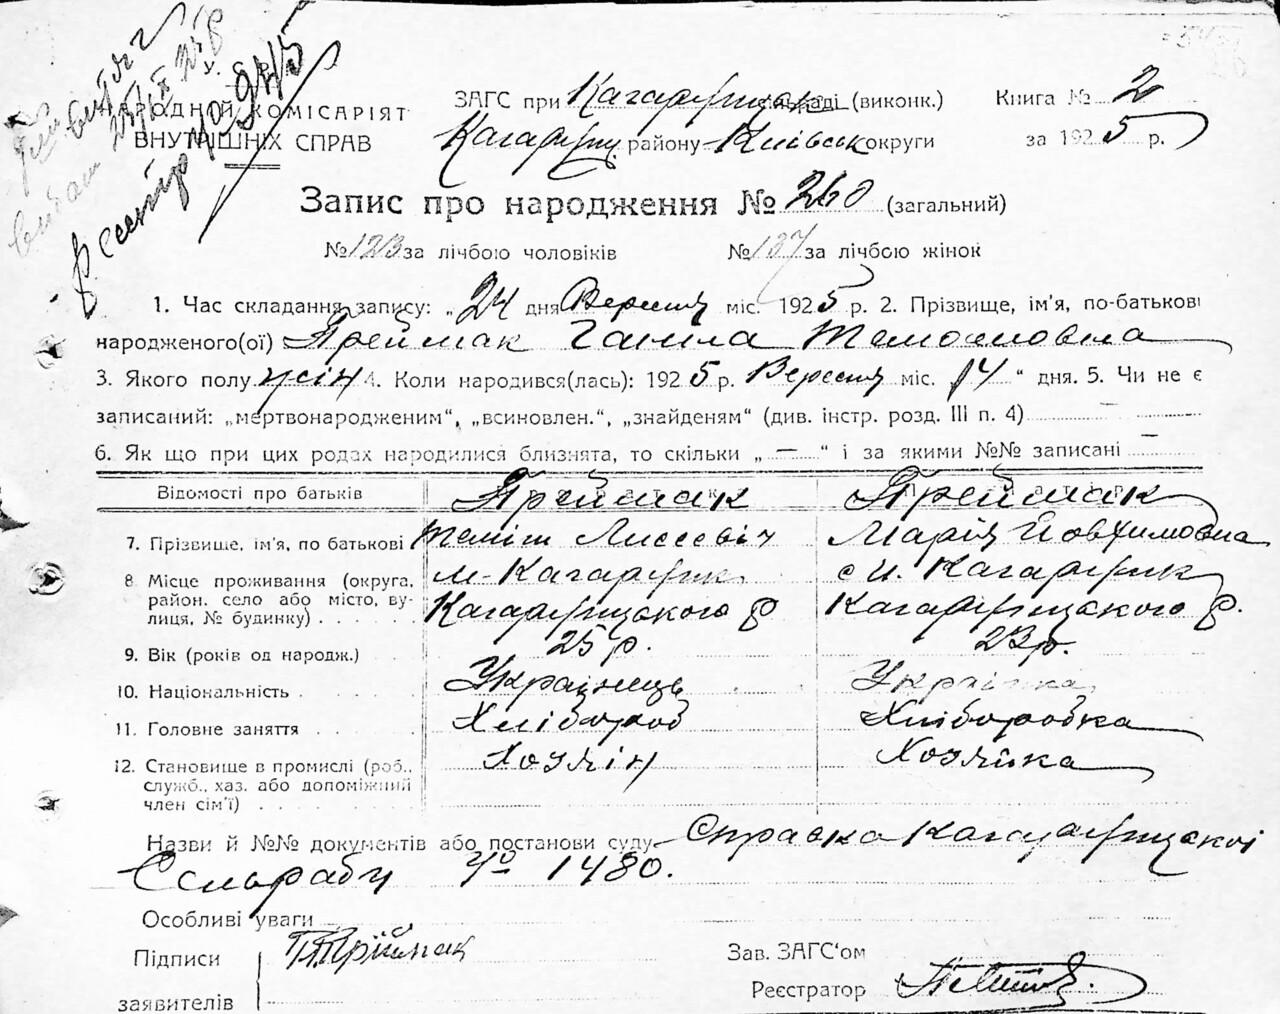 НАРОДНІЙ КОМІСАРІЯТ
ВНУТРІШНІХ СПРАВ
ЗАГС при Кагарлицькій раді (виконк.) Книга № 2
Кагарлиц. району Київськ округи за 1925 р.
Запис про народження № 260 (загальний)
№ 123 за лічбою чоловіків № 137 за лічбою жінок
1. Час складання запису: „24 дня Вересня міс. 1925 р. 2. Прізвище, ім'я, по-батькові
народженого(ої) Преймак Ганна
3. Якого полу жін 4. Коли народився(лась): 1925 р. Вересня міс. 14 “ дня. 5. Чи не є
записаний: „мертвонародженим“, „всиновлен.“, „знайденям“ (див. інстр. розд. III п. 4) —
6. Як що при цих родах народилися близнята, то скільки „ — “ і за якими №№ записані —
Відомості про батьків Преймак Преймак
7. Прізвище, ім'я, по батькові Марія Йовхимовна
8 Місце проживання (округа, м. Кагарлик с м. Кагарлик
район, село або місто, ву-
лиця, № будинку) Кагарлицского р Кагарлицского р.
9. Вік (років од народж.) 25 р. 23 р.
10. Національність Українець Українка
11. Головне заняття Хлібороб Хліборобка
12. Становище в промислі (роб., Хозяін Хозяйка
служб., хаз. або допоміжний
член сім'ї)
Назви й №№ документів або постанови суду Справка Кагарлицской
Сельради № 1480.
Особливі уваги
Підписи Зав. ЗАГС'ом
заявителів Реєстратор